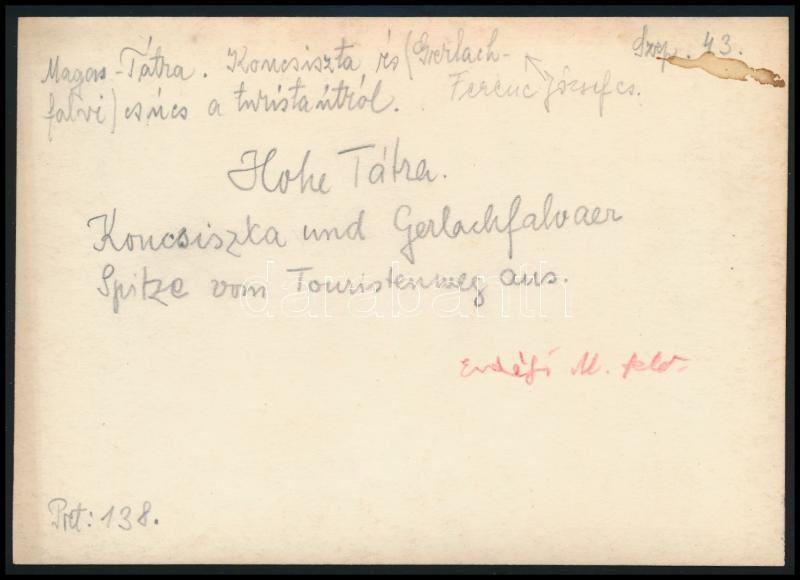 Szep. 43.
Magas-Tátra. Koncsiszta és (Gerlach-
falvi) csúcs a turistaútról.
Ferenc József cs.
Hohe Tátra.
Koncsiszka und Gerlachfalvaer
Spitze vom Touristenweg aus.
darabanth
Erdélyi M. felv.
: 138.